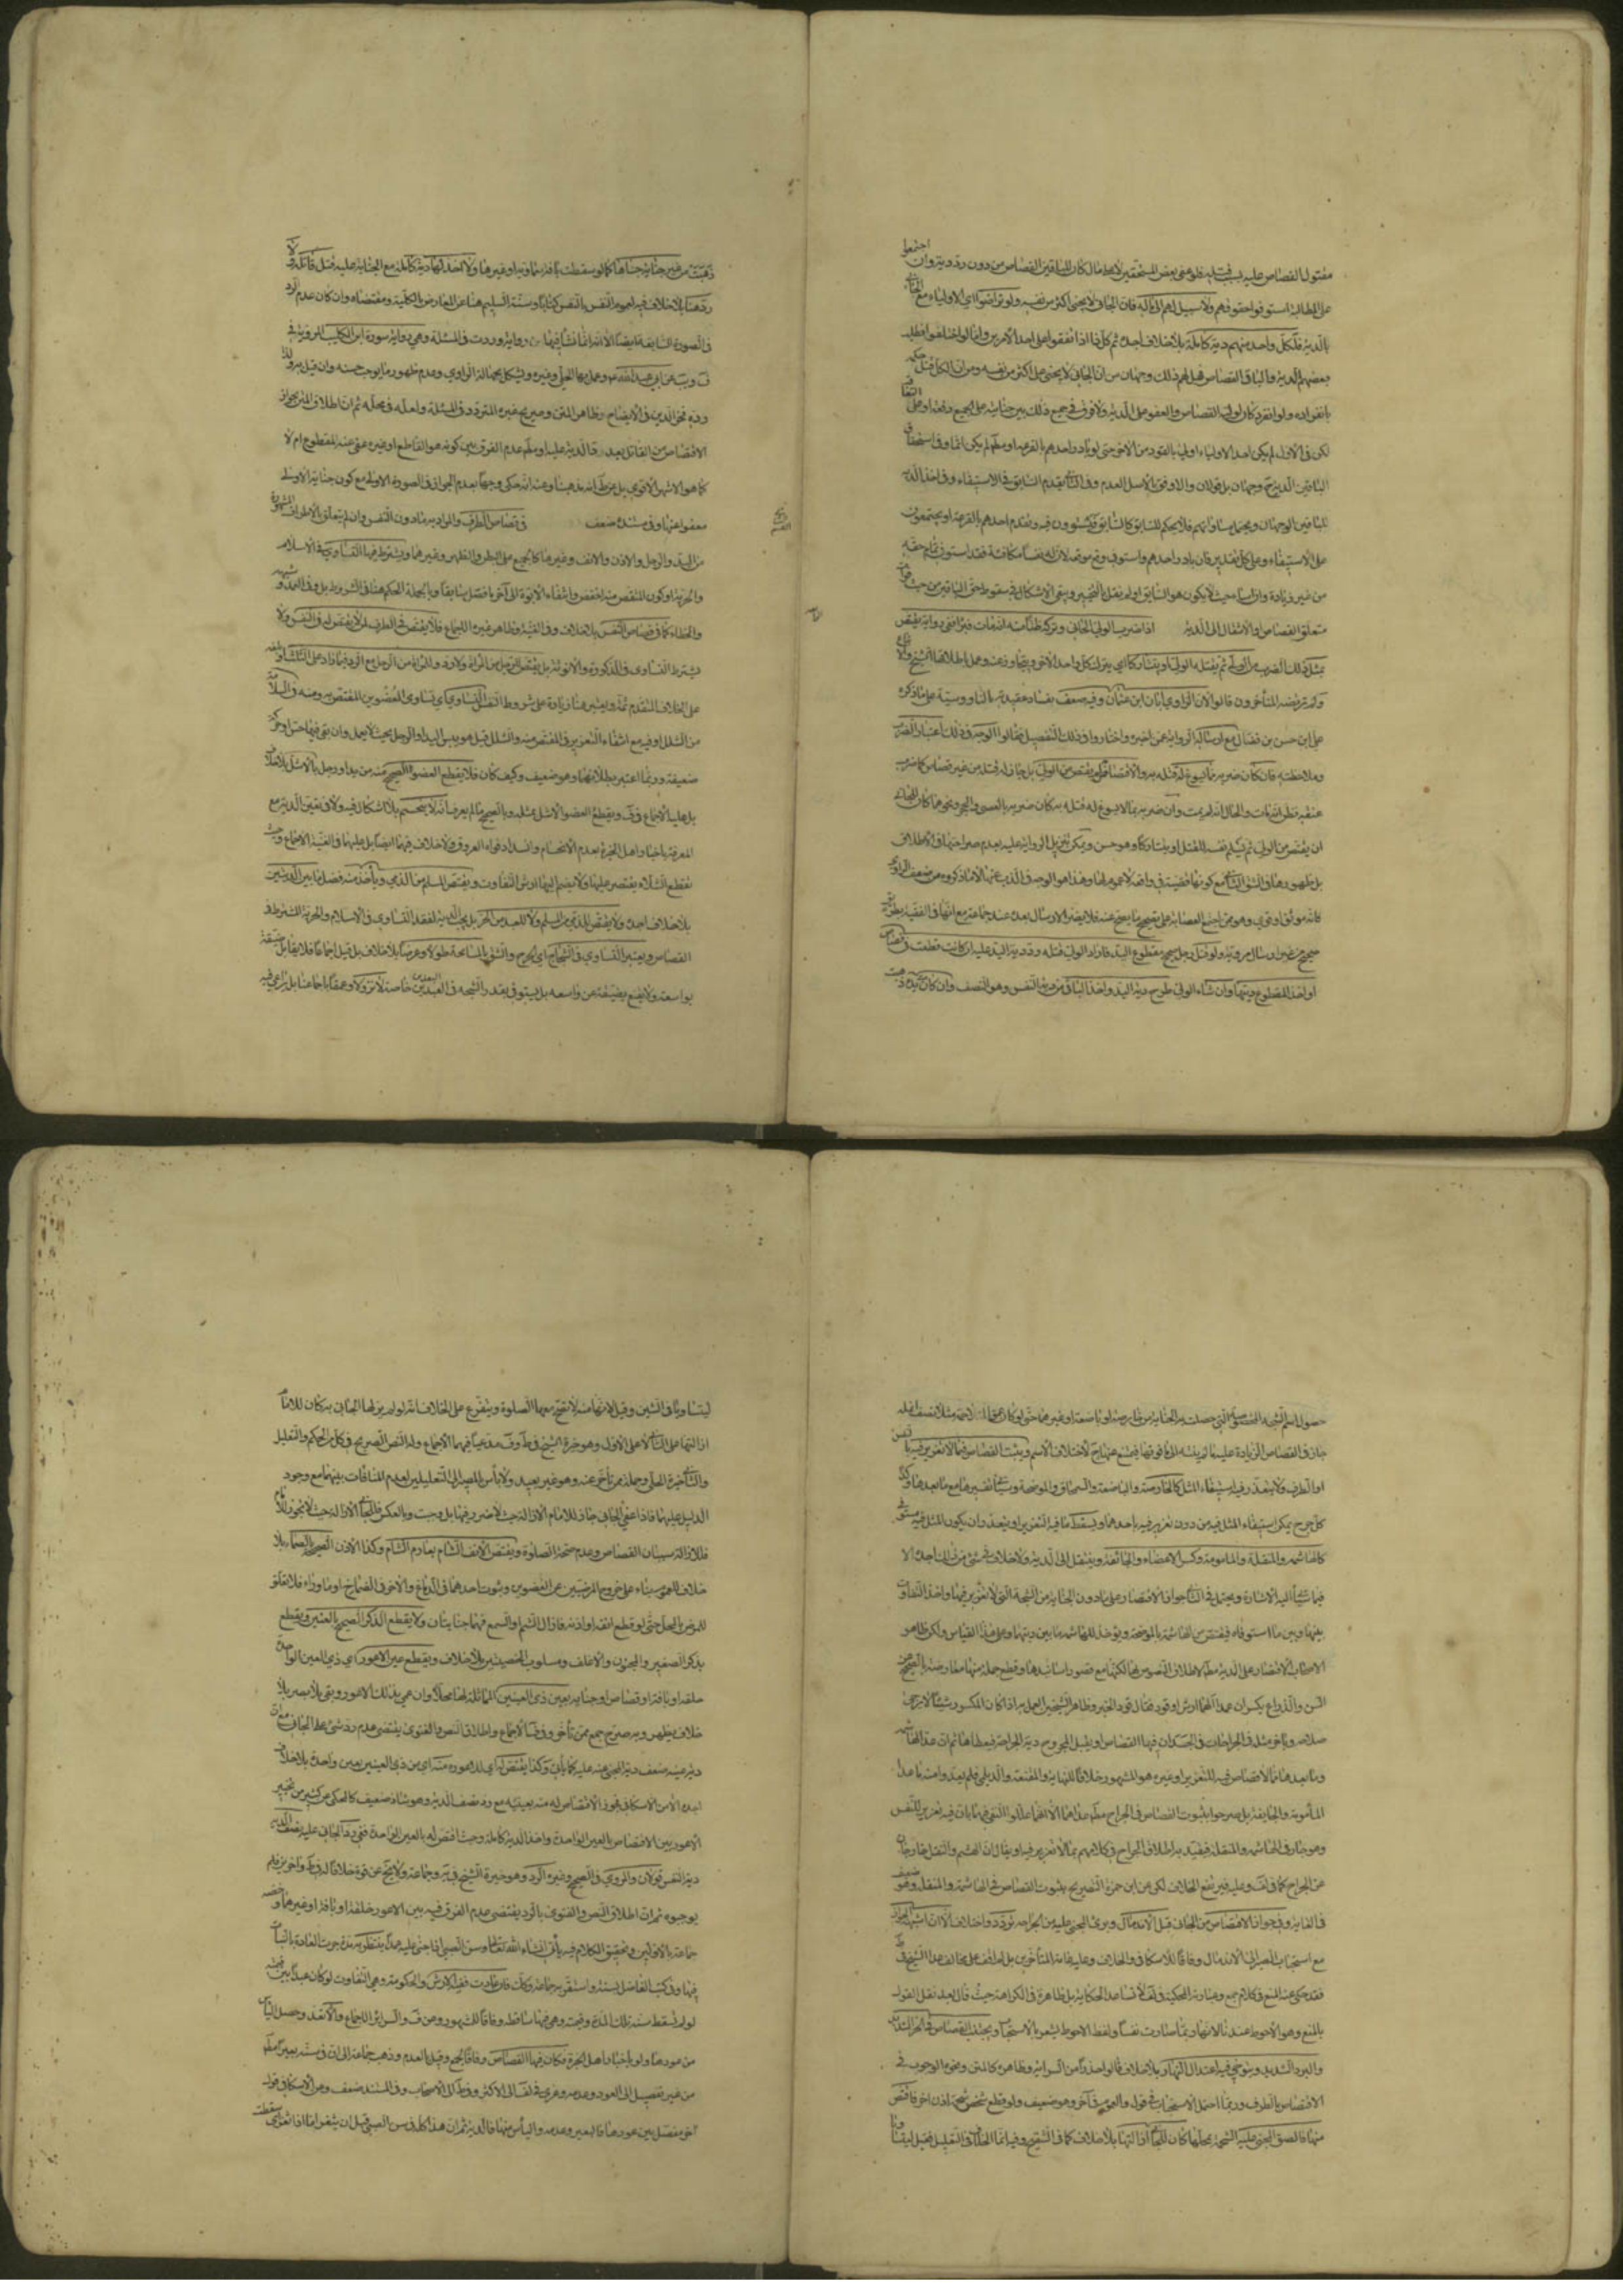 مقتول القصاص عليه بسبب قتله فلو عفى بعض المستحقين لا على مال كان للباقين القصاص من دون رد دية وان اجتمعوا
على المطالبة استوفوا حقوقهم ولا سبيل لهم الى ماله فان الجاني لا يجني اكثر من نفسه ولو تراضوا اي الاولياء مع الجاني
بالدية فلكل واحد منهم دية كاملة بلا خلاف اجده ثم كل ذا اذا اتفقوا على احد الامرين واما لو اختلفوا فطلب
بعضهم الدية والباقي القصاص فهل لهم ذلك وجهان من ان الجاني لا يجني على اكثر من نفسه ومن ان لكل قتل حكمه
بانفراده ولو انفرد كان لوليه القصاص والعفو على الدية ولا فرق في جميع ذلك بين جنايته على الجميع دفعة او على التعاقب
لكن في الاول لم يكن احد الاولياء اولى بالقود من الاخر
الباقين الدية وجهان بل قولان والاوفق بالاصل العدم وفي الثاني يقدم السابق في الاستيفاء وفي اخذ الدية
للباقين الوجهان ويحتمل مساواتهم فلا يحكم للسابق
على الاستيفاء وعلى كل تقدير فان بادر واحدهم واستوفى وقع موقعه لان له نفسا مكافئة فقد استوفى تمام حقه
من غير زيادة وان اساء حيث لا يكون هو السابق او لم نقل بالتخيير ويبقى الاشكال في سقوط حق الباقين من حيث فوات
متعلق القصاص والانتقال الى الدية اذا ضرب الولي الجاني وتركه ظنا منه انه مات فبرأ ففي رواية يقتص
بمثل ذلك الضرب من الولي ثم يقتله الولي او يتتاركا اي يترك كل واحد الاخر
ولم يرتضه المتأخرون قالوا لان الراوي ابان ابن عثمان وفيه ضعف بفساد عقيدته بالناووسية على ما ذكره
على ابن حسن بن فضال مع ارسالة الرواية عمن اخبره واختاروا في ذلك التفصيل فقالوا الوجه في ذلك اعتبار الضرب
وملاحظته فان كان ضربه بما يسوغ له قتله به والاقتصاص لم يقتص من الولي بل جاز له قتله من غير قصاص كما ضرب
عنقه فظن انه مات والحال انه لم يمت وان ضربه بما لا يسوغ له قتله به كان ضربه بالعصى والحجر ونحوهما كان للجاني
ان يقتص من الولي ثم يسلم نفسه للقتل او يتتاركا وهو حسن ويمكن تنزيل الرواية عليه بعدم صراحتها في الاطلاق
بل ظهورها في الشق الثاني مع كونها قضية في واقعة لا عموم لها وهذا هو الوجه في الذب عنها لا ما ذكروه من ضعف الراوي
كانه موثق او قوي وهو ممن اجمع العصابة على تصحيح ما يصح عنه فلا يضر الارسال بعده عند جماعة مع انها في الفقيه بطريق
صحيح من غير ارسال مروية ولو قتل رجل صحيح مقطوع اليد فاراد الولي قتله رد دية اليد عليه ان كانت قطعت في قصاص
او اخذ المقطوع ديتها وان شاء الولي طرح دية اليد واخذ الباقي من دية النفس وهو النصف وان كان يده ذهبت
ذهبت من غير جناية جناها كما لو سقطت بآفة سماوية او غيرها ولا اخذ لها دية كاملة مع الجناية عليه قتل قاتله ولا
رد هنا بلا خلاف فيه لعموم النفس بالنفس كتابا وسنة السليم هنا عن المعارض بالكلية ومقتضاه وان كان عدم الرد
في الصورة السابقة ايضا الا انه انما نشأ فيها من رواية وردت في المسئلة وهي رواية سورة ابن كليب المروية في
عن ابي عبد الله عمل بها الحلي وغيره ويشكل بجهالة الراوي وعدم ظهور ما يوجب حسنه وان قيل به ولذا
رده فخر الدين في الايضاح وظاهر المتن وصريح غيره التردد في المسئلة ولعله في محله ثم ان اطلاق المتن بجواز
الاقتصاص من القاتل بعد رد الدية عليه او مطلقا عدم الفرق بين كونه هو القاطع او غيره عفى عنه المقطوع ام لا
كما هو الاشهر الاقوى
معفوا عنها وفي مسنده ضعف في قصاص الطرف والمراد به ما دون النفس وان لم يتعلق بالاطراف المشهورة
من اليد والرجل والاذن والانف وغيرها كالجرح على البطن والظهر وغيرهما ويشترط فيه التساوي في الاسلام
والحرية او كون المقتص منه اخفض وانتفاء الابوة الى آخر ما فصل سابقا وبالجملة الحكم هنا في الشروط بل وفي العمد وشبهه
والخطاء كما في قصاص النفس بلا خلاف وفي الغنية وظاهر غيره الاجماع فلا يقتص في الطرف لمن لا يقتص له في النفس ولا
يشترط التساوي في الذكورة والانوثة بل يقتص للرجل من المرأة ولا رد وللمرأة من الرجل مع الرد فيما زاد على الثلث او بلغه
على الخلاف المتقدم ثمة ويعتبر هنا زيادة على شروط النفس التساوي اي تساوي العضوين المقتص به ومنه في السلامة
من الشلل او فيه مع انتفاء التغرير في المقتص منه والشلل قيل هو يبس اليد او الرجل بحيث لا يعمل وان بقي فيها حس او حركة
ضعيفة وربما اعتبر بطلانهما وهو ضعيف وكيف كان فلا يقطع العضو الصحيح منه من يد او رجل بالاشل بلا خلاف
بل عليه الاجماع في ف ويقطع العضو الاشل بمثله وبالصحيح ما لم يعرف انه لا ينحسم بلا اشكال فيه ولا في تعين الدية مع
المعرفة باخبار اهل الخبرة بعدم الانحسام وانسداد فواه العروق ولا خلاف فيهما ايضا بل عليهما في الغنية الاجماع وحيث
يقطع الشلاء يقتصر عليها ولا يضم اليها ارش التفاوت ويقتص للمسلم من الذمي ويأخذ منه فضل ما بين الديتين
بلا خلاف اجده ولا يقتص للذمي من المسلم ولا للعبد من الحر بل يجب الدية لفقد التساوي في الاسلام والحرية المشترط في
القصاص ويعتبر التساوي في الشجاج اي الجرح والشق بالمساحة طولا وعرضا بلا خلاف بل قيل اجماعا فلا يقابل ضيقة
بواسعة ولا يقنع بضيقة عن واسعة بل يستوفى بقدر الشجة في البعدين خاصة لا نزولا وعمقا بل يراعى فيه
حصول اسم الشجة المخصوص التي حصلت به الجناية من خارصة او باضعة او غيرهما حتى لو كان عمق المتلاحمة مثلا نصف انملة
جاز في القصاص الزيادة عليه ما لم ينته الى ما فوقها فيمنع عنها ح لاختلاف الاسم ويثبت القصاص فيما لا تغرير فيه بالنفس
او الطرف ولا يتعذر فيه استيفاء المثل كالخارصة والباضعة والسمحاق والموضحة وسيأتي تفسيرها مع ما بعدها وكذا
كل جرح يمكن استيفاء المثل فيه من دون تغرير فيه باحدهما ويسقط ما فيه التغرير او يتعذر ان يكون المثل فيه مستوفى
كالهاشمة والمنقلة والمأمومة وكسر الاعضاء والجائفة وينتقل الى الدية ولا خلاف في شيء من ذلك اجده الا
فيما سيأتي اليه الاشارة ويحتمل في الثاني جواز الاقتصار على ما دون الجناية من الشجة التي لا تغرير فيها واخذ التفاوت
بينها وبين ما استوفاه فيقتص من الهاشمة بالموضحة ويؤخذ للهاشمة ما بين ديتها وعلى هذا القياس ولكن ظاهر
الاصحاب الاقتصار على الدية مطلقا لاطلاق النصوص بها لكنها مع قصور اسانيدها وقطع جملة منها معارضة بالصحيح عن
السن والذراع يكسران عمدا لهما ارش او قود فقال قود الخبر وظاهر الشيخين العمل به اذا كان المكسور شيئا لا يرجى
صلاحه وبآخر مثله في الجراحات في الجسد ان فيها القصاص او يقبل المجروح دية الجراحة فيعطاها ثم ان عد الهاشمة
وما بعدها مما لا قصاص فيه للتغرير او غيره هو المشهور خلافا للنهاية والمقنعة والديلمي فلم يعدوا منه ما عدا
المأمومة والجائفة بل صرحوا بثبوت القصاص في الجراح مطلقا عداهما لانهما عللوا النفي فيهما بان فيه تغرير للنفس
وهو جار في الهاشمة والمنقلة فيقيد به اطلاق الجراح في كلامهم بما لا تغرير فيه او يقال ان الهشم والنقل خارجان
عن الجراح كما في لف وعليه فيرتفع الخلاف لكن عن ابن حمزة التصريح بثبوت القصاص في الهاشمة والمنقلة وهو ضعيف
في الغاية وفي جواز الاقتصاص من الجاني قبل الاندمال وبرء المجني عليه من الجراحة تردد واختلاف الا ان اشبهه الجواز
مع استحباب الصبر الى الاندمال وفاقا للاسكافي والخلاف وعليه عامة المتأخرين بل لم اقف على مخالف عدا الشيخ في ط
فقد حكي عنه المنع في كلام جمع وعبارته المحكية في لف لا تساعد الحكاية بل ظاهرة في الكراهة حيث قال بعد نقل القول
بالمنع وهو الاحوط عندنا لانها ربما صارت نفسا ولفظ الاحوط يشعر بالاستحباب ويجتنب القصاص في الحر الشديد
والبرد الشديد ويتوخى فيه اعتدال النهار بلا خلاف
الاقتصاص بالطرف وربما احتمل الاستحباب في قول والعموم في آخر وهو ضعيف ولو قطع شخص شحمة اذن اخر فاقتص
منه فالصق المجني عليه الشحمة بمحلها كان للجاني ازالتها بلا خلاف كما في التنقيح وفيه انما الخلاف في التعليل فقيل
ليتساويا في الشين وقيل لانها ميتة لا تصح معها الصلوة ويتفرع على الخلاف انه لو لم يزلها الجاني به كان للامام
ازالتها على الثاني لا على الاول وهو خيرة الشيخ في ط وف مدعيا فيهما الاجماع وله النص الصريح في كل من الحكم والتعليل
والثاني خيرة الحلي وجملة ممن تأخر عنه وهو غير بعيد ولا بأس بالمصير الى التعليلين لعدم المنافات بينهما مع وجود
الدليل عليهما فاذا عفى الجاني جاز للامام الازالة حيث لا ضرر فيها بل وجبت وبالعكس فللجاني الازالة حيث لا يجوز للامام
فللازالة سببان القصاص وعدم صحة الصلوة ويقتص الانف الشام بعادم الشام وكذا الاذن الصحيح بالصماء بلا
خلاف للعموم بناء على خروج المرضين عن العضوين وثبوت احدهما في الدماغ والاخر في الصماخ او ما وراه فلا تعلق
للمرض بالمحل حتى لو قطع انفه او اذنه فازال الشم والسمع فهما جنايتان ولا يقطع الذكر الصحيح بالعنين ويقطع
بذكر الصغير والمجنون والاغلف ومسلوب الخصيتين بلا خلاف ويقطع عين الاعور اي ذي العين الواحدة
خلقة او بآفة او قصاص او جناية بعين ذي العينين المماثلة لها محلا وان عمي بذلك الاعور وبقي بلا بصر بلا
خلاف يظهر وبه صرح جمع ممن تأخر وفي ف الاجماع واطلاق النص والفتوى يقتضي عدم رد شيء على الجاني مع ان
دية عينه ضعف دية المجني عنه عليه كما يأتي وكذا يقتص له اي للاعور منه اي من ذي العينين بعين واحدة بلا خلاف
اجده الا من الاسكافي فجوز الاقتصاص له منه بعينيه مع رد نصف الدية وهو شاذ ضعيف كالمحكي عن كثير من تخيير
الاعور بين الاقتصاص بالعين الواحدة واخذ الدية كاملة وحيث اقتص له بالعين الواحدة ففي رد الجاني عليه نصف الدية
دية النفس قولان والمروي في الصحيح وغيره الرد وهو خيرة الشيخ في يه وجماعة ولا يخ عن قوة خلافا له في ف واخرين فلم
يوجبوه ثم ان اطلاق النص والفتوى بالرد يقتضي عدم الفرق فيه بين الاعور خلقة او بآفة او غيرهما وخصه
جماعة بالاولين وتحقيق الكلام فيه يأتي انشاء الله تعالى وسن الصبي اذا جني عليه عمدا ينتظر به مدة جرت العادة بالنبات
فيها وفي كتب الفاضل بسنة واستقر به جماعة وكان فان عادت ففيه الارش والحكومة وهي التفاوت لو كان عبدا بين قيمته
لو لم يسقط سنه تلك المدة وقيمته وهي فيها ساقطة وفاقا للمشهور وعن ف والسرائر الاجماع والا تعد وحصل اليأس
من عودها ولو باخبار اهل الخبرة فكان فيها القصاص وفاقا لجمع وقيل بالعدم وذهب جماعة الى ان في سنه بعير مطلقا
من غير تفصيل الى العود وعدمه وعزي في لف الى الاكثر وفي ط الى الاصحاب وفي المسند ضعف وعن الاسكافي قول
آخر مفصل بين عودها فالبعير وعدمه واليأس منها فالدية ثم ان هذا كله في سن الصبي قبل ان يثغر اما اذا ثغر اي سقطت